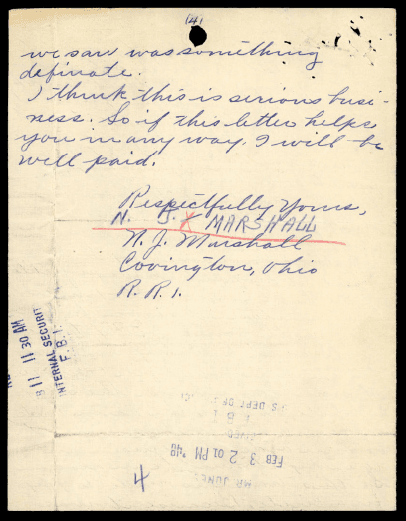 (4)
we saw was something
definate.
I think this is serious busi-
ness. So if this letter helps
you in any way. I will be
well paid.
Respectfully Yours,
N. J. MARSHALL
N. J. Marshall
Covington, Ohio
R. R. 1.
11 30 AM
INTERNAL SECURITY
F. B. I.
S DEPT OF
F B I
FEB 3 2 01 PM '48
MR JONES
4